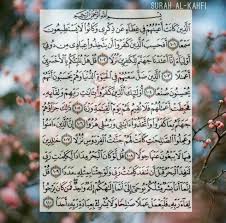 SURAH AL-KAHFI
الَّذِينَ كَانَتْ أَعْيُنُهُمْ فِي غِطَاءٍ عَن ذِكْرِي وَكَانُوا لَا يَسْتَطِيعُونَ
سَمْعًا ١٠١ أَفَحَسِبَ الَّذِينَ كَفَرُوا أَن يَتَّخِذُوا عِبَادِي مِن دُونِي
أَوْلِيَاءَ إِنَّا أَعْتَدْنَا جَهَنَّمَ لِلْكَافِرِينَ نُزُلًا ١٠٢ قُلْ هَلْ نُنَبِّئُكُم بِالْأَخْسَرِينَ
أَعْمَالًا ١٠٣ الَّذِينَ ضَلَّ سَعْيُهُمْ فِي الْحَيَاةِ الدُّنْيَا وَهُمْ يَحْسَبُونَ أَنَّهُمْ
يُحْسِنُونَ صُنْعًا ١٠٤ أُولَٰئِكَ الَّذِينَ كَفَرُوا بِآيَاتِ رَبِّهِمْ وَلِقَائِهِ
فَحَبِطَتْ أَعْمَالُهُمْ فَلَا نُقِيمُ لَهُمْ يَوْمَ الْقِيَامَةِ وَزْنًا ١٠٥ ذَٰلِكَ
جَزَاؤُهُمْ جَهَنَّمُ بِمَا كَفَرُوا وَاتَّخَذُوا آيَاتِي وَرُسُلِي هُزُوًا ١٠٦ إِنَّ
الَّذِينَ آمَنُوا وَعَمِلُوا الصَّالِحَاتِ كَانَتْ لَهُمْ جَنَّاتُ الْفِرْدَوْسِ نُزُلًا ١٠٧ خَالِدِينَ
فِيهَا لَا يَبْغُونَ عَنْهَا حِوَلًا ١٠٨ قُل لَّوْ كَانَ الْبَحْرُ مِدَادًا لِّكَلِمَاتِ رَبِّي
لَنَفِدَ الْبَحْرُ قَبْلَ أَن تَنفَدَ كَلِمَاتُ رَبِّي وَلَوْ جِئْنَا بِمِثْلِهِ مَدَدًا ١٠٩
قُلْ إِنَّمَا أَنَا بَشَرٌ مِّثْلُكُمْ يُوحَىٰ إِلَيَّ أَنَّمَا إِلَٰهُكُمْ إِلَٰهٌ وَاحِدٌ فَمَن كَانَ يَرْجُو
لِقَاءَ رَبِّهِ فَلْيَعْمَلْ عَمَلًا صَالِحًا وَلَا يُشْرِكْ بِعِبَادَةِ رَبِّهِ أَحَدًا ١١٠